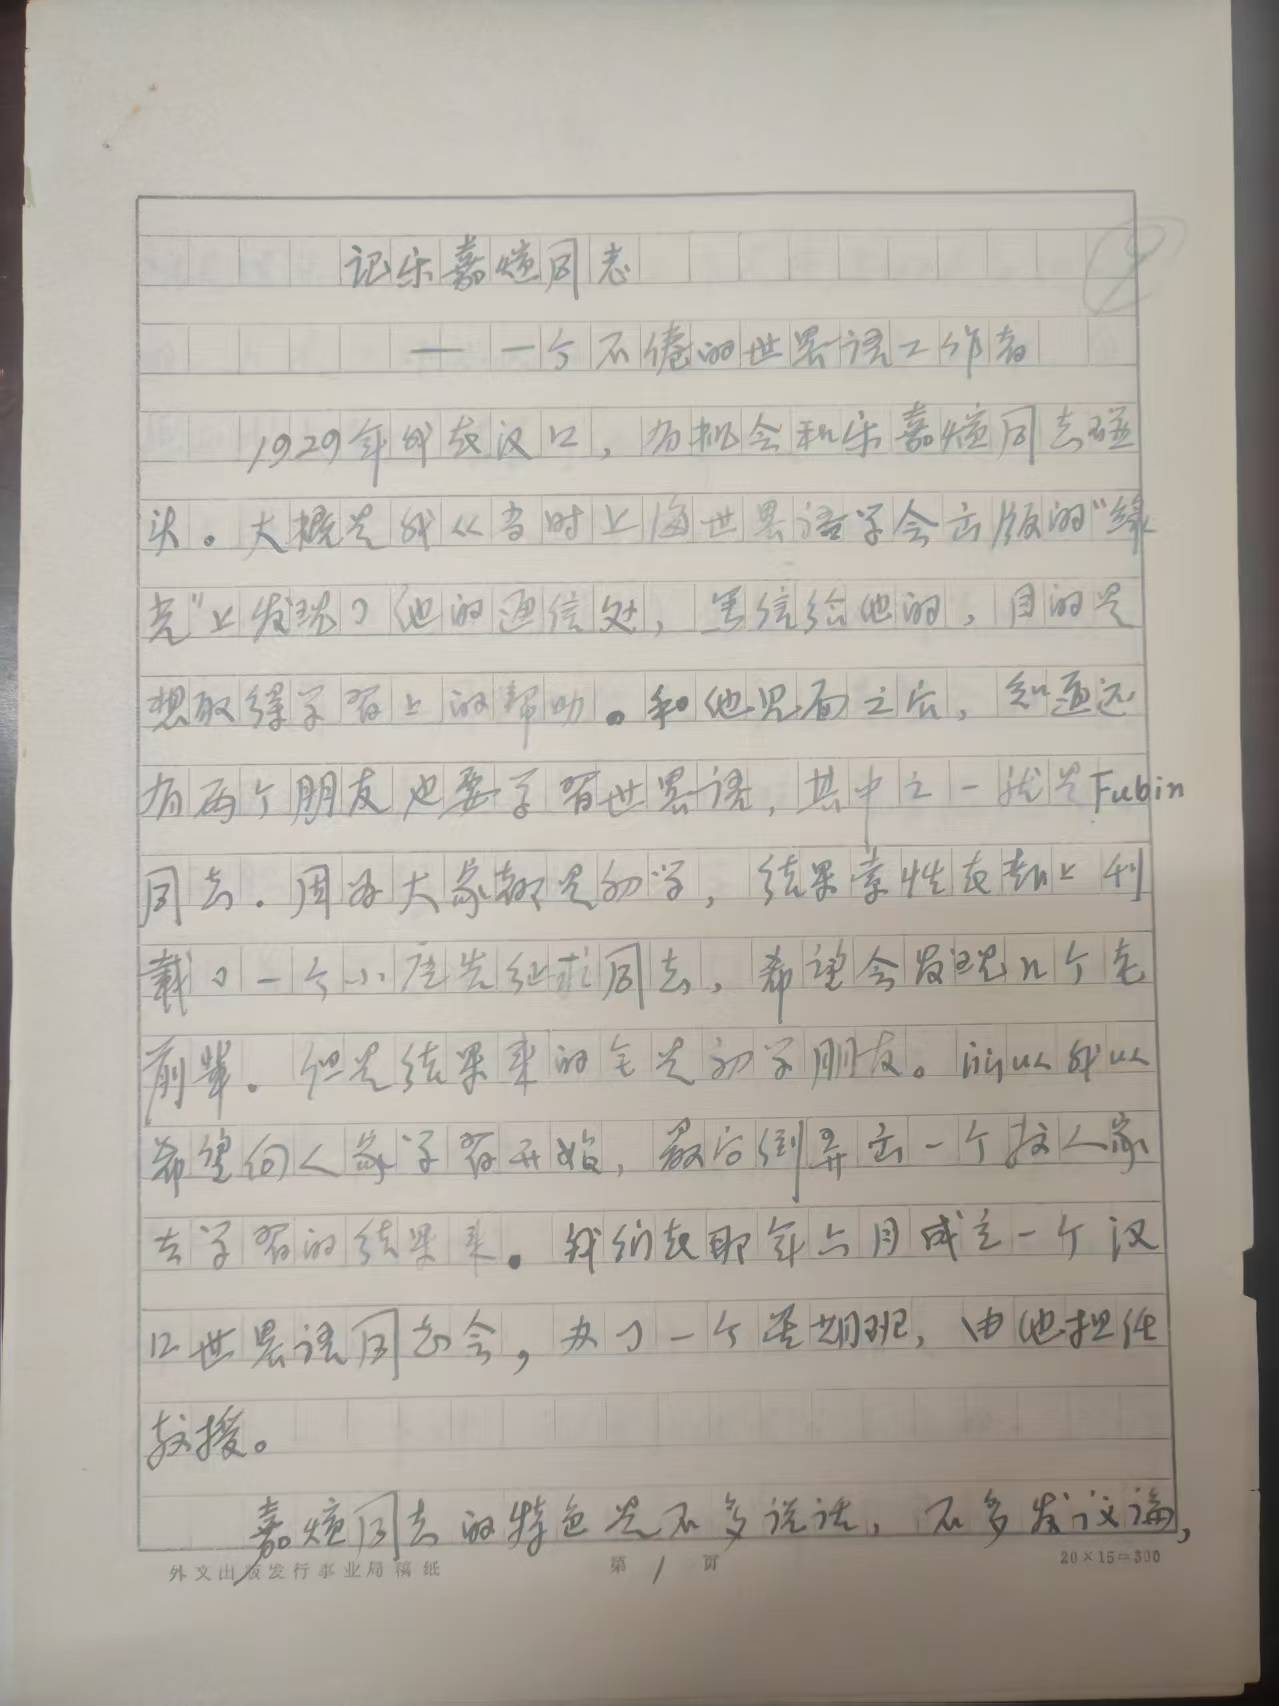 记乐嘉煊同志
—— 一个不倦的世界语工作者
1929年我在汉口，有机会和乐嘉煊同志碰
头。大概是我从当时上海世界语学会出版的“绿
光”上发现了他的通信处，写信给他的，目的是
想取得学习上的帮助。和他见面之后，知道还
有两个朋友也要学习世界语，其中之一就是Fubin
同志．因为大家都是初学，结果索性在报上刊
载了一个小广告征求同志，希望会发现几个老
前辈。但是结果来的全是初学朋友。所以我以
希望向人家学习开始，最后倒弄出一个教人家
去学习的结果来。我们在那年六月成立一个汉
口世界语同志会，办了一个星期班，由他担任
教授。
嘉煊同志的特色是不多说话，不多发议论，
外文出版发行事业局稿纸 第 1 页 20×15＝300